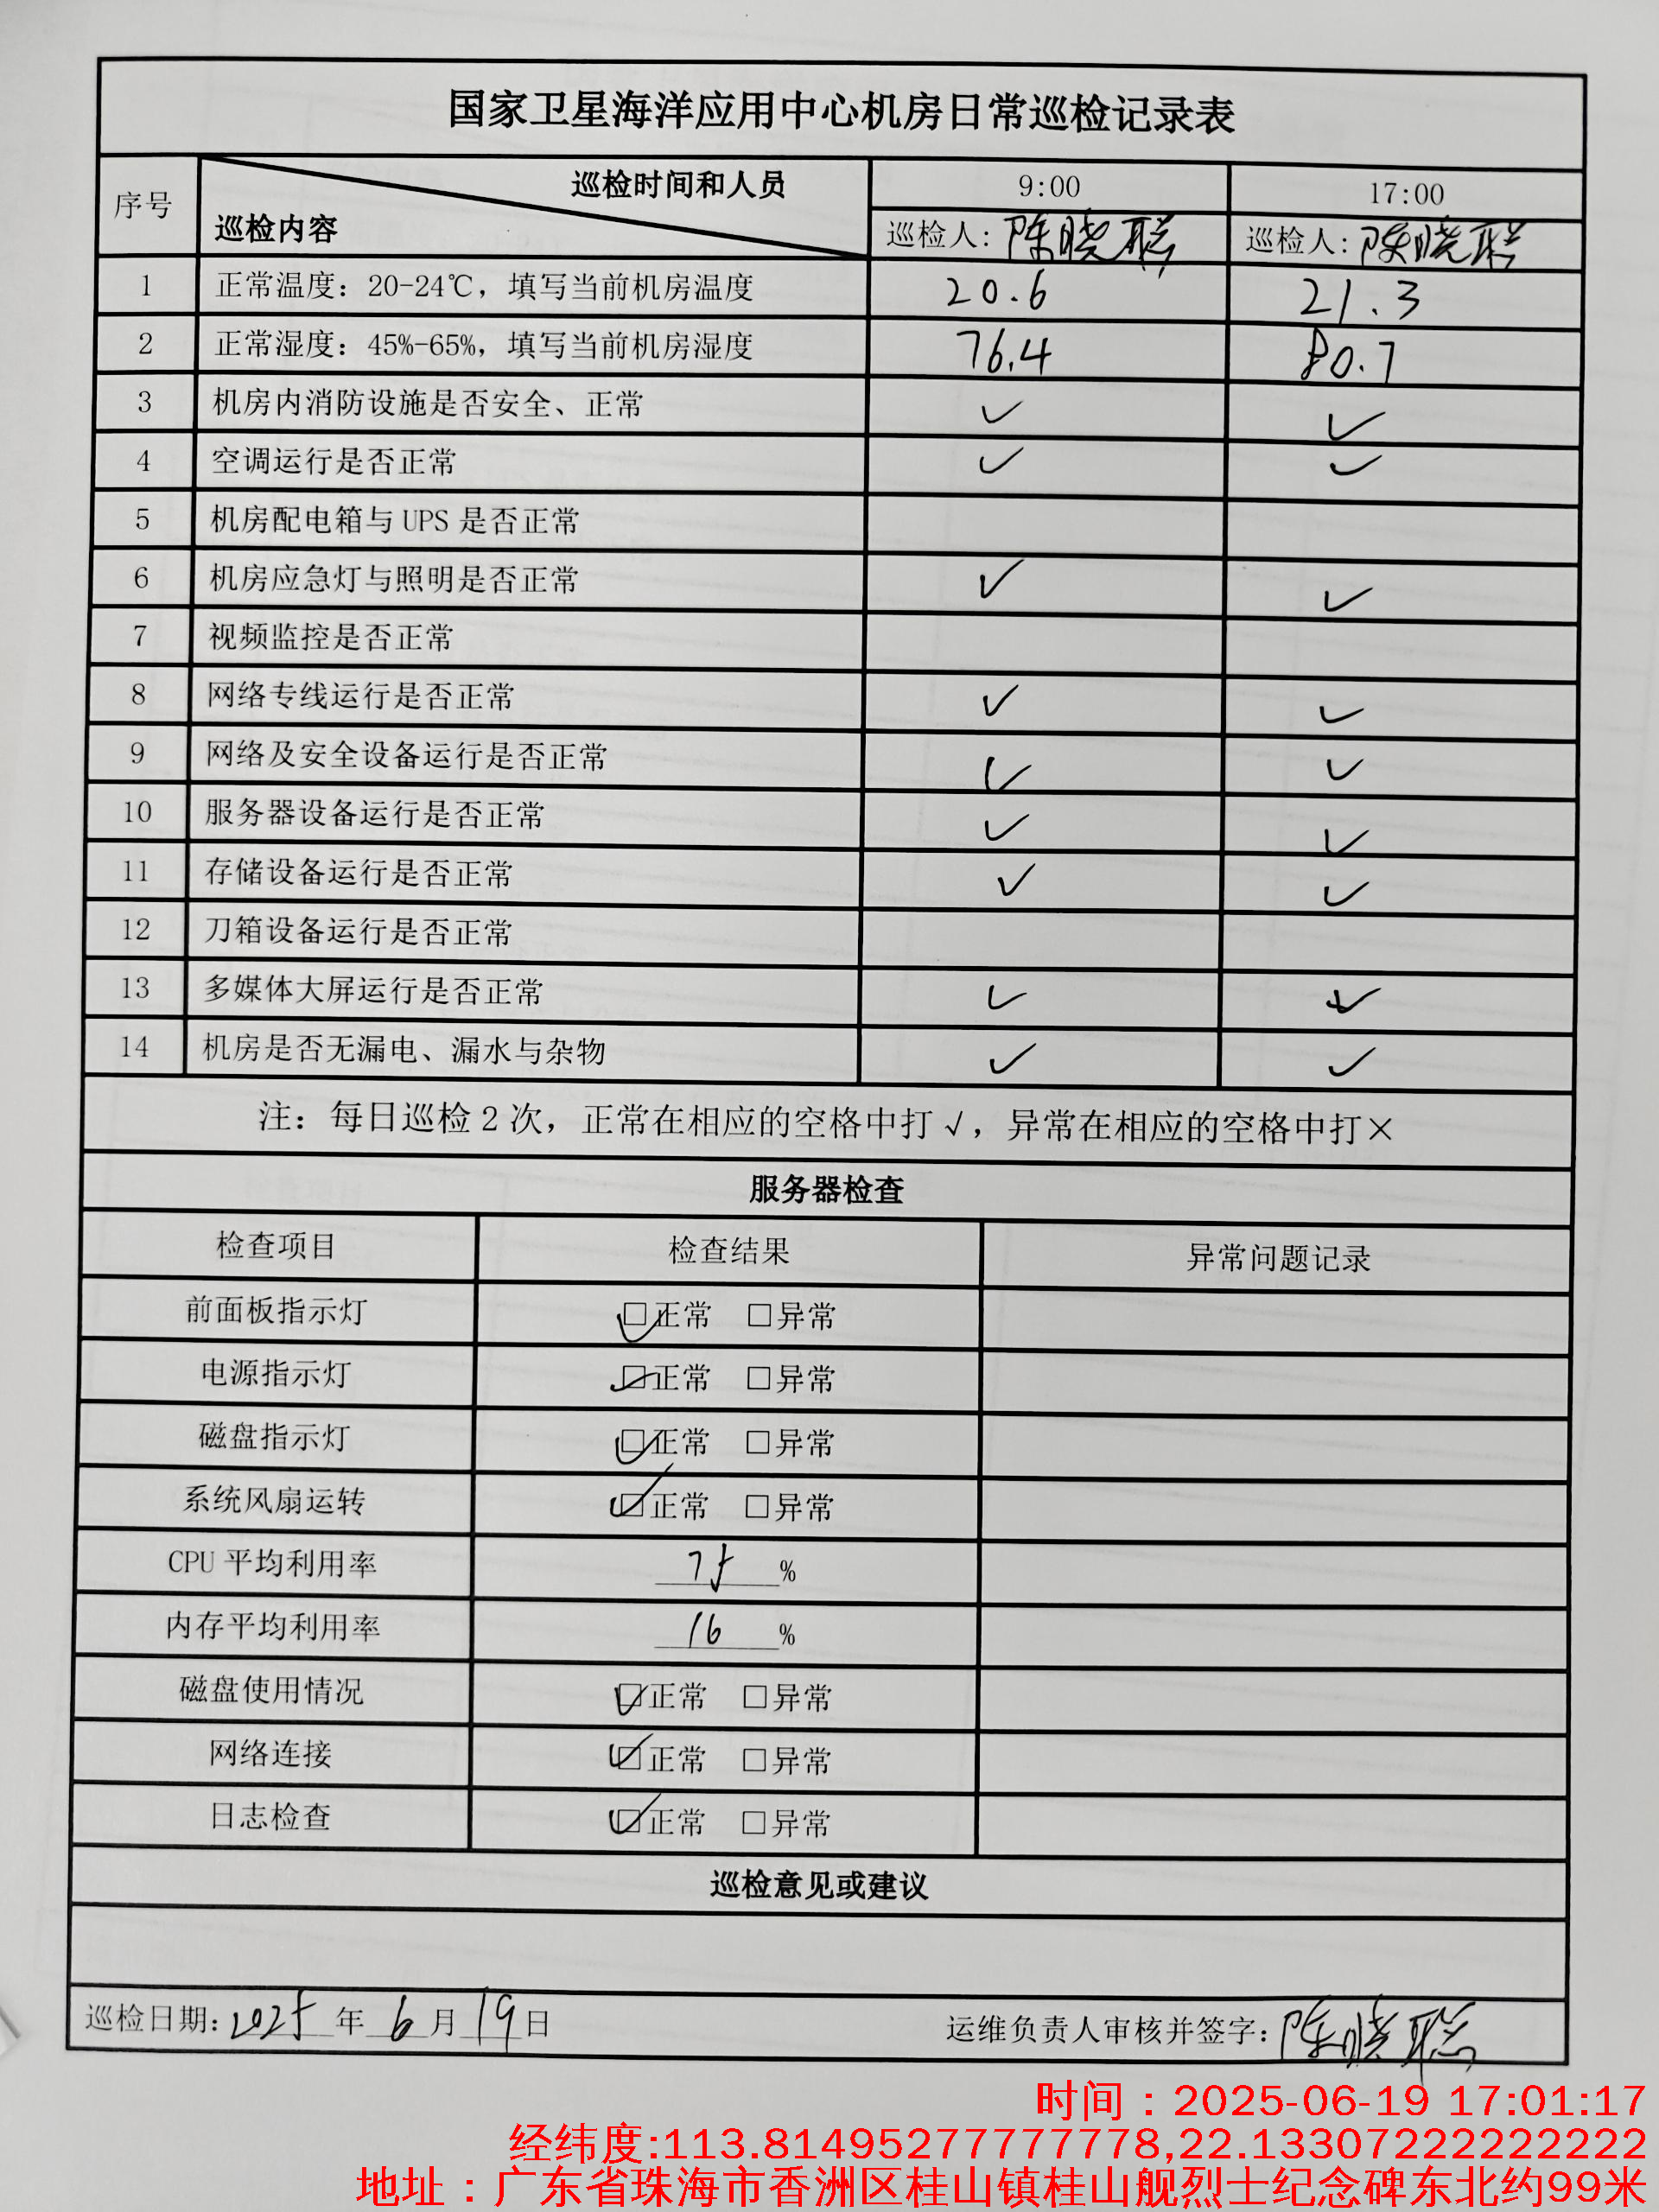 国家卫星海洋应用中心机房日常巡检记录表
序号 巡检时间和人员 巡检内容 9:00 17:00
巡检人: 陈晓聪 巡检人: 陈晓聪
1 正常温度: 20-24℃, 填写当前机房温度 20.6 21.3
2 正常湿度: 45%-65%, 填写当前机房湿度 76.4 80.7
3 机房内消防设施是否安全、正常 ✓ ✓
4 空调运行是否正常 ✓ ✓
5 机房配电箱与 UPS 是否正常
6 机房应急灯与照明是否正常 ✓ ✓
7 视频监控是否正常
8 网络专线运行是否正常 ✓ ✓
9 网络及安全设备运行是否正常 ✓ ✓
10 服务器设备运行是否正常 ✓ ✓
11 存储设备运行是否正常 ✓ ✓
12 刀箱设备运行是否正常
13 多媒体大屏运行是否正常 ✓ ✓
14 机房是否无漏电、漏水与杂物 ✓ ✓
注: 每日巡检 2 次, 正常在相应的空格中打 √, 异常在相应的空格中打×
服务器检查
检查项目 检查结果 异常问题记录
前面板指示灯 ☑正常 □异常
电源指示灯 ☑正常 □异常
磁盘指示灯 ☑正常 □异常
系统风扇运转 ☑正常 □异常
CPU 平均利用率 75%
内存平均利用率 16%
磁盘使用情况 ☑正常 □异常
网络连接 ☑正常 □异常
日志检查 ☑正常 □异常
巡检意见或建议
巡检日期: 2025 年 6 月 19 日 运维负责人审核并签字: 陈晓聪
时间：2025-06-19 17:01:17
经纬度:113.81495277777778,22.13307222222222
地址：广东省珠海市香洲区桂山镇桂山舰烈士纪念碑东北约99米